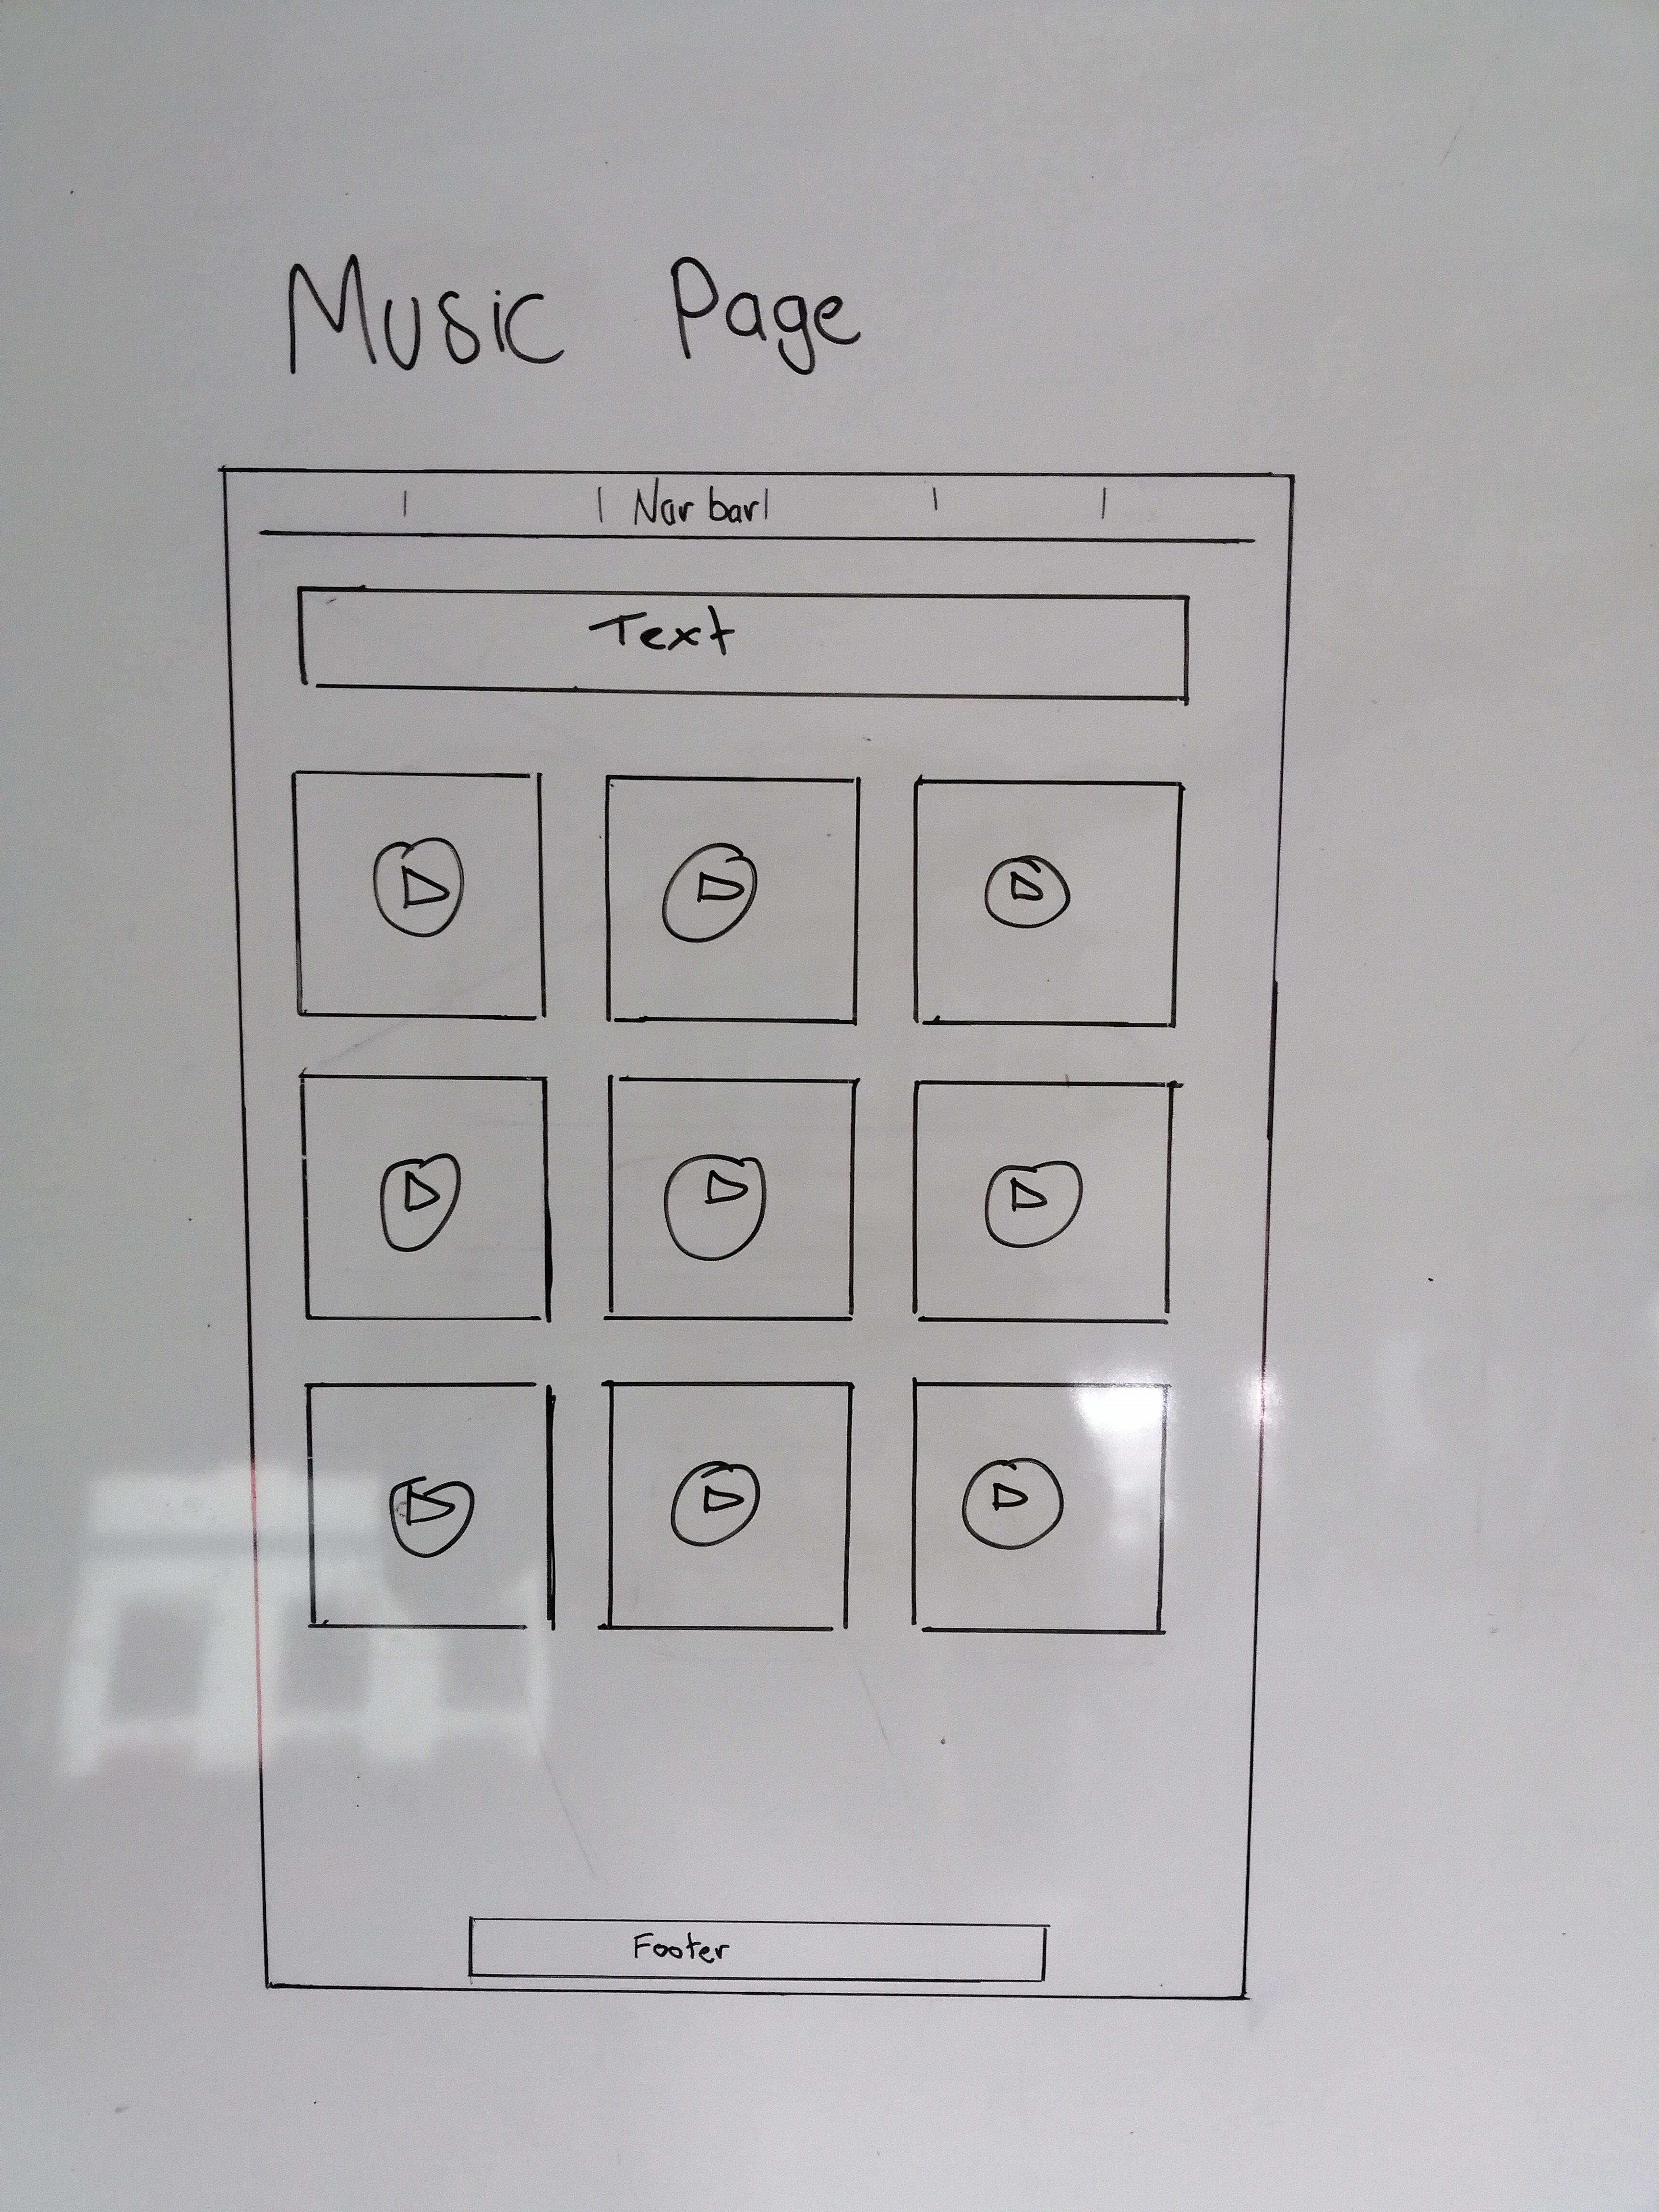 Music Page
Nav bar
Text
Footer